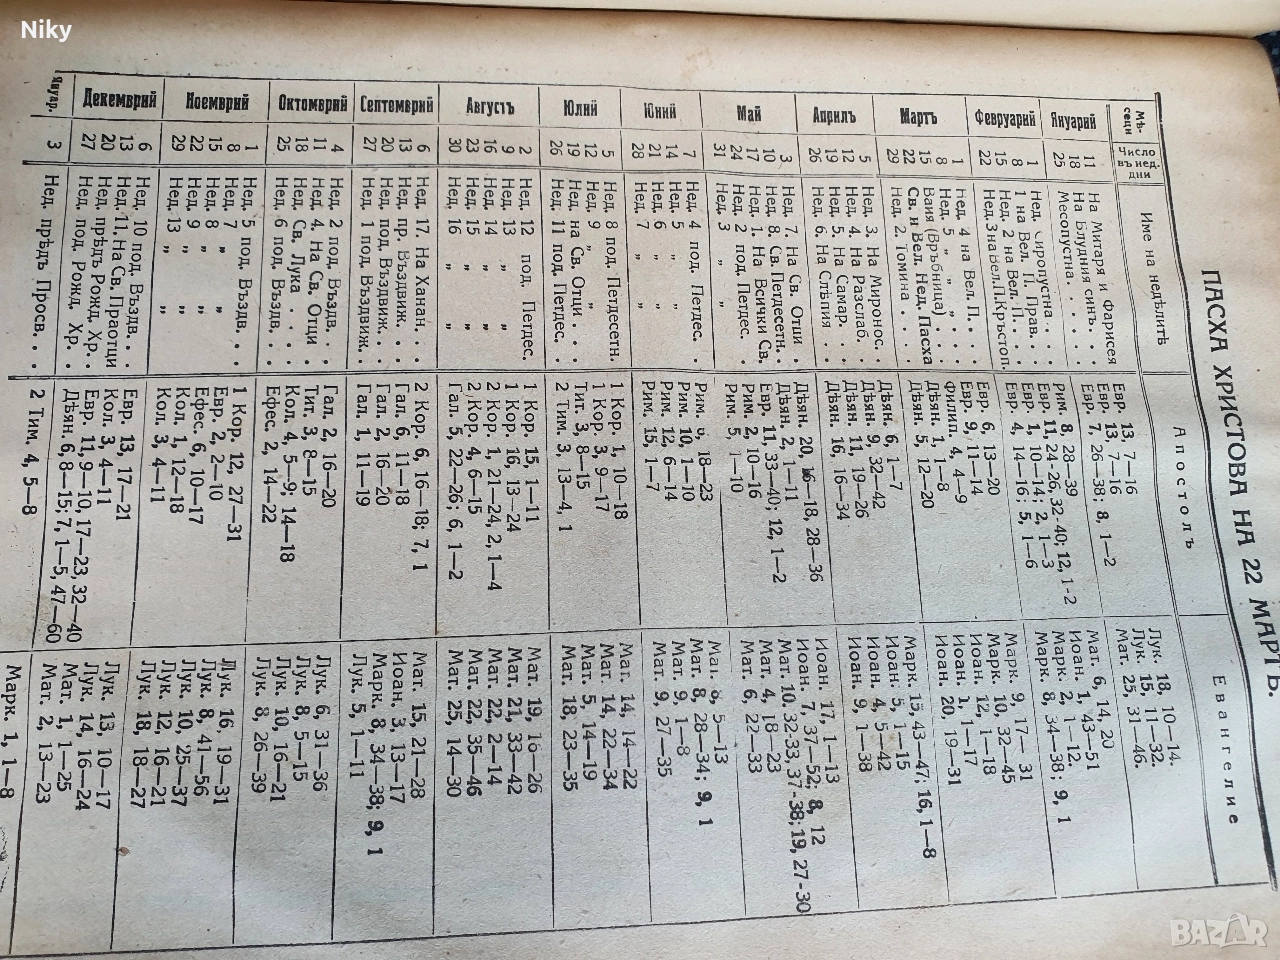 Niky
ПАСХА ХРИСТОВА НА 22 МАРТЪ.
Мѣсеци Число въ нед. дни Име на недѣлитѣ Апостолъ Евангелие
Януарий 11 На Митаря и Фарисея Евр. 13, 7—16 Лук. 18, 10—14.
18 На Блудния синъ. 13, 7—16 Лук. 15, 11—32.
25 Месопустна Евр. 7, 26-38; 8, 1—2 Мат. 25, 31—46.
Февруарий 1 Нед. Сиропустна Рим. 8, 28—39 Мат. 6, 14, 20
8 1 на Вел. П. Прав. Евр. 11, 24-26, 32-40; 12, 1-2 Иоан. 1, 43—51
15 Нед. 2 на Вел. П. Евр. 1, 10—14; 2, 1—3 Марк. 2, 1—12.
22 Нед. 3 на Вел. П. Кръстоп. Евр. 4, 14—16; 5, 1—6 Марк. 8, 34—38; 9, 1
Мартъ 1 Нед. 4 на Вел. П. Евр. 6, 13—20 Марк. 9, 17—31
8 Нед. 5 „ „ Евр. 9, 11—14 Марк. 10, 32—45
15 Ваия (Връбница) Филип. 4, 4—9 Иоан. 12, 1—18
22 Св. и Вел. Нед. Пасха Дѣян. 1, 1—8 Иоан. 1, 1—17
29 Нед. 2. Томина Дѣян. 5, 12—20 Иоан. 20, 19—31
Априлъ 5 Нед. 3. На Миронос. Дѣян. 6, 1—7 Марк. 15, 43—47; 16, 1—8
12 Нед. 4. На Разслаб. Дѣян. 9, 32—42 Иоан. 5, 1—15
19 Нед. 5. На Самар. Дѣян. 11, 19—26 Иоан. 4, 5—42
26 Нед. 6. На Слѣпия Дѣян. 16, 16—34 Иоан. 9, 1—38
Май 3 Нед. 7. На Св. Отци Дѣян. 20, 16—18, 28—36 Иоан. 17, 1—13
10 Нед. 8. Св. Петдесетн. Дѣян. 2, 1—11 Иоан. 7, 37—52; 8, 12
17 Нед. 1. На Всички Св. Евр. 11, 33—40; 12, 1—2 Мат. 10, 32-33, 37-38; 19, 27-30
24 Нед. 2 под. Петдес. Рим. 2, 10—16 Мат. 4, 18—23
31 Нед. 3 „ „ Рим. 5, 1—10 Мат. 6, 22—33
Юний 7 Нед. 4 под. Петдес. Рим. 6, 18—23 Мат. 8, 5—13
14 Нед. 5 „ „ Рим. 10, 1—10 Мат. 8, 28—34; 9, 1
21 Нед. 6 „ „ Рим. 12, 6—14 Мат. 9, 1—8
28 Нед. 7 „ „ Рим. 15, 1—7 Мат. 9, 27—35
Юлий 5 Нед. 8 под. Петдесетн. 1 Кор. 1, 10—18 Мат. 14, 14—22
12 Нед. 9 „ „ 1 Кор. 3, 9—17 Мат. 14, 22—34
19 Нед. на Св. Отци Тит. 3, 8—15 Мат. 5, 14—19
26 Нед. 11 под. Петдес. 2 Тим. 3, 13—4, 1 Мат. 18, 23—35
Августъ 2 Нед. 12 под. Петдес. 1 Кор. 15, 1—11 Мат. 19, 16—26
9 Нед. 13 „ „ 1 Кор. 16, 13—24 Мат. 21, 33—42
16 Нед. 14 „ „ 2 Кор. 1, 21—24, 2, 1—4 Мат. 22, 2—14
23 Нед. 15 „ „ 2 Кор. 4, 6—15 Мат. 22, 35—46
30 Нед. 16 „ „ Гал. 5, 22—26; 6, 1—2 Мат. 25, 14—30
Септомврий 6 Нед. 17. На Ханан. 2 Кор. 6, 16—18; 7, 1 Мат. 15, 21—28
13 Нед. пр. Въздвиж. Гал. 6, 11—18 Иоан. 3, 13—17
20 Нед. под. Въздвиж. Гал. 2, 16—20 Марк. 8, 34—38; 9, 1
27 Нед. 1 под. Въздвиж. Гал. 1, 11—19 Лук. 5, 1—11
Октомврий 4 Нед. 2 под. Въздв. Гал. 2, 16—20 Лук. 6, 31—36
11 Нед. 4. На Св. Отци Тит. 3, 8—15 Лук. 8, 5—15
18 Нед. Св. Лука Кол. 4, 5—9; 14—18 Лук. 10, 16—21
25 Нед. 6 под. Въздв. Ефес. 2, 14—22 Лук. 8, 26—39
Ноемврий 1 Нед. 5 под. Въздв. 1 Кор. 12, 27—31 Лук. 16, 19—31
8 Нед. 7 „ „ Евр. 2, 2—10 Лук. 8, 41—56
15 Нед. 8 „ „ Ефес. 6, 10—17 Лук. 10, 25—37
22 Нед. 9 „ „ Кол. 1, 12—18 Лук. 12, 16—21
29 Нед. 13 „ „ Кол. 3, 4—11 Лук. 18, 18—27
Декемврий 6 Нед. 10 под. Въздв. Евр. 13, 17—21 Лук. 13, 10—17
13 Нед. 11, На Св. Праотци Кол. 3, 4—11 Лук. 14, 16—24
20 Нед. прѣдъ Рожд. Хр. Евр. 11, 9—10, 17—23, 32—40 Мат. 1, 1—25
27 Нед. под. Рожд. Хр. Дѣян. 6, 8—15; 7, 1—5, 47—60 Мат. 2, 13—23
Януар. 3 Нед. прѣдъ Просв. 2 Тим. 4, 5—8 Марк. 1, 1—8
BAZAR